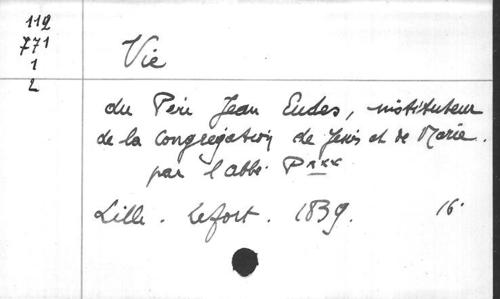 112
771
1
2
Vie
du Père Jean Eudes, instituteur
de la Congrégation de Jésus et de Marie.
par l'abbé P***
Lille. Lefort. 1839. 16°